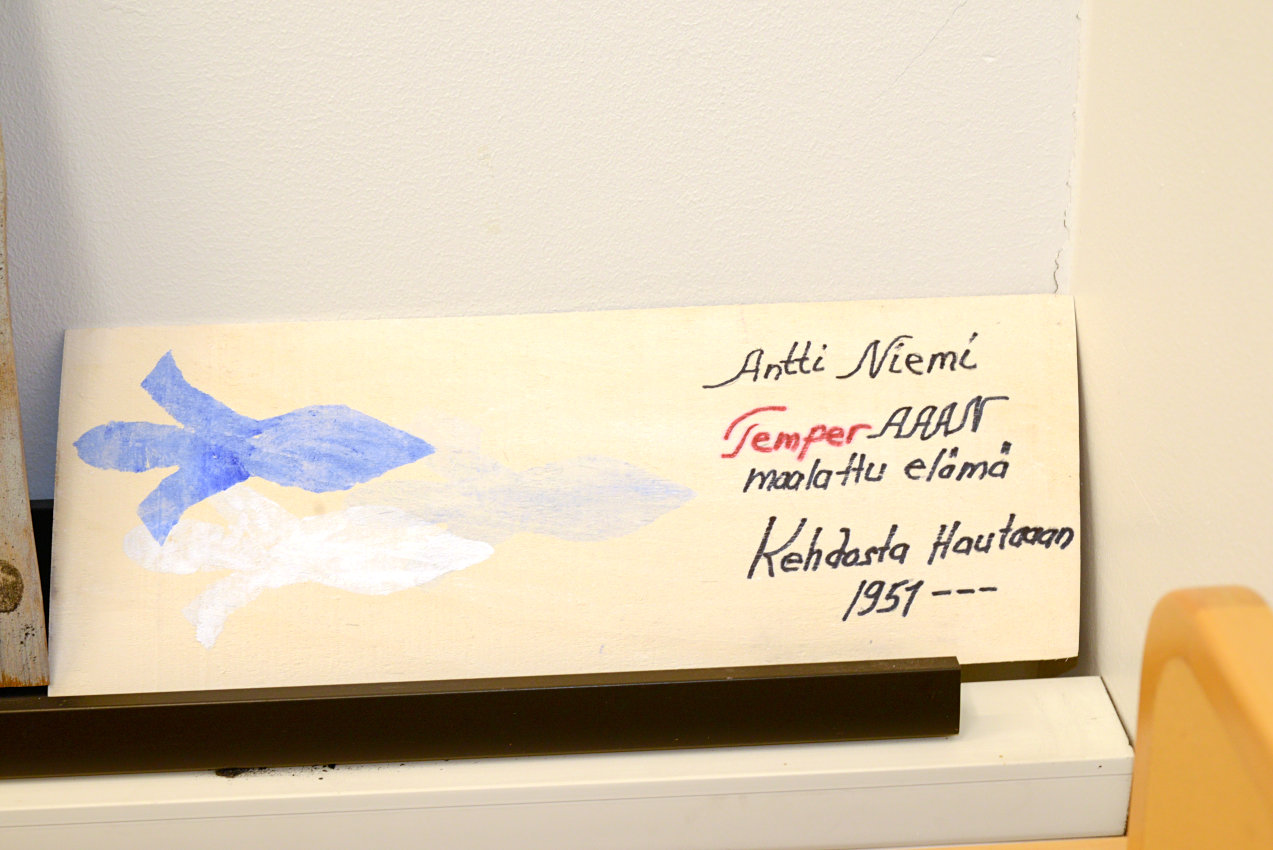 Antti Niemi
TemperAAAN
maalattu elämä
Kehdosta Hautaaan
1951 ---